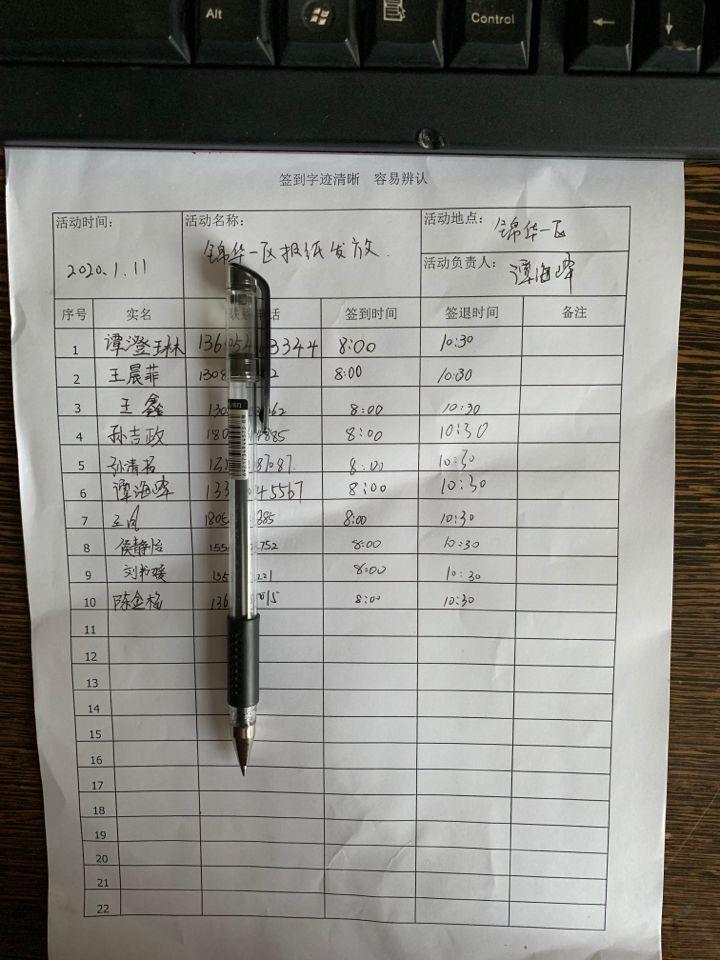 Alt
Control
签到字迹清晰 容易辨认
活动时间: 活动名称: 活动地点: 锦华一区
2020.1.11 锦华一区报纸发放
活动负责人: 谭海峰
序号 实名 话 签到时间 签退时间 备注
1 谭澄琳 136 3344 8:00 10:30
2 王晨菲 1308 2 8:00 10:30
3 王鑫 130 62 8:00 10:30
4 孙吉政 180 885 8:00 10:30
5 孙清 8:00 10:30
6 谭海峰 133 45567 8:00 10:30
7 1805 385 8:00 10:30
8 侯静怡 155 752 8:00 10:30
9 刘 媛 221 8:00 10:30
10 陈金梅 136 015 8:00 10:30
11
12
13
14
15
16
17
18
19
20
21
22